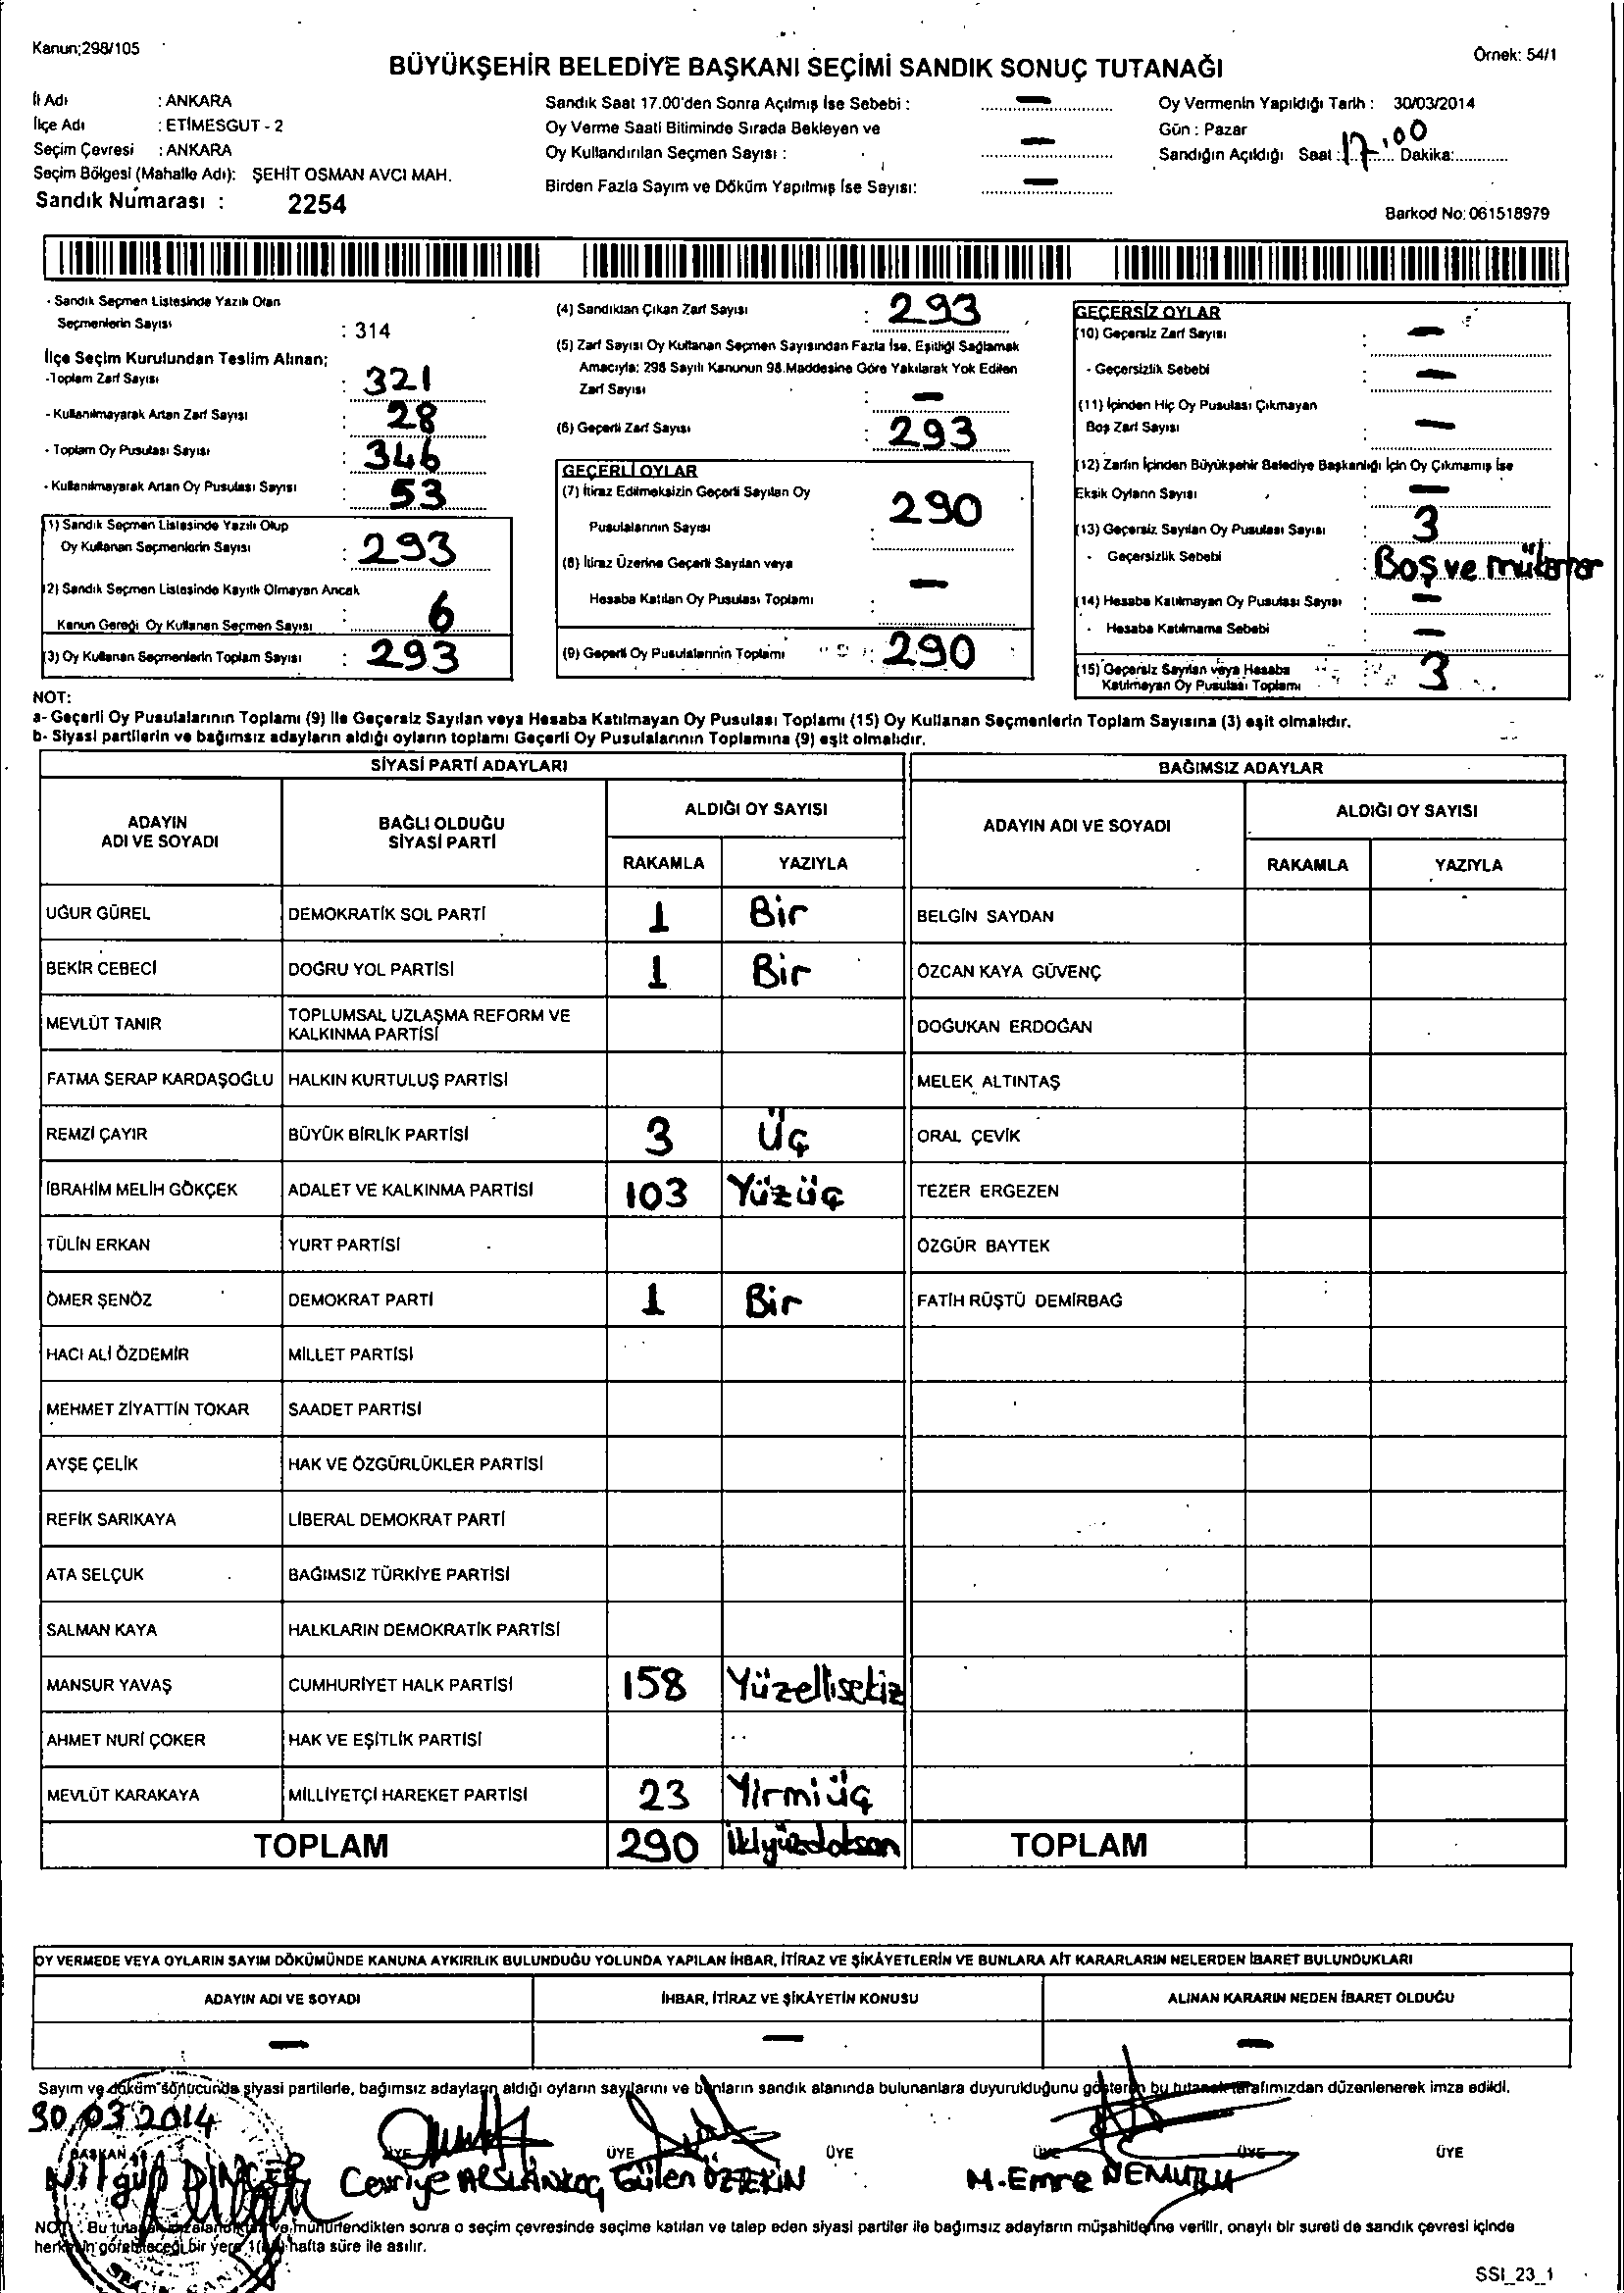 Kanun;298/105
Örnek: 54/1
BÜYÜKŞEHİR BELEDİYE BAŞKANI SEÇİMİ SANDIK SONUÇ TUTANAĞI
İl Adı : ANKARA
İlçe Adı : ETİMESGUT - 2
Seçim Çevresi : ANKARA
Seçim Bölgesi (Mahalle Adı): ŞEHİT OSMAN AVCI MAH.
Sandık Numarası : 2254
Sandık Saat 17.00'den Sonra Açılmış İse Sebebi : —
Oy Verme Saati Bitiminde Sırada Bekleyen ve
Oy Kullandırılan Seçmen Sayısı : —
Birden Fazla Sayım ve Döküm Yapılmış İse Sayısı: —
Oy Vermenin Yapıldığı Tarih : 30/03/2014
Gün : Pazar
Sandığın Açıldığı Saat : 17:00 Dakika:
Barkod No: 061518979
- Sandık Seçmen Listesinde Yazılı Olan
Seçmenlerin Sayısı : 314
İlçe Seçim Kurulundan Teslim Alınan;
-Toplam Zarf Sayısı : 321
- Kullanılmayarak Artan Zarf Sayısı : 28
- Toplam Oy Pusulası Sayısı : 346
- Kullanılmayarak Artan Oy Pusulası Sayısı : 53
(1) Sandık Seçmen Listesinde Yazılı Olup
Oy Kullanan Seçmenlerin Sayısı : 293
(2) Sandık Seçmen Listesinde Kayıtlı Olmayan Ancak
Kanun Gereği Oy Kullanan Seçmen Sayısı : 6
(3) Oy Kullanan Seçmenlerin Toplam Sayısı : 293
(4) Sandıktan Çıkan Zarf Sayısı : 293
(5) Zarf Sayısı Oy Kullanan Seçmen Sayısından Fazla İse, Eşitliği Sağlamak
Amacıyla; 298 Sayılı Kanunun 98.Maddesine Göre Yakılarak Yok Edilen
Zarf Sayısı : —
(6) Geçerli Zarf Sayısı : 293
GEÇERLİ OYLAR
(7) İtiraz Edilmeksizin Geçerli Sayılan Oy
Pusulalarının Sayısı : 290
(8) İtiraz Üzerine Geçerli Sayılan veya
Hesaba Katılan Oy Pusulası Toplamı : —
(9) Geçerli Oy Pusulalarının Toplamı : 290
GEÇERSİZ OYLAR
(10) Geçersiz Zarf Sayısı : —
- Geçersizlik Sebebi : —
(11) İçinden Hiç Oy Pusulası Çıkmayan
Boş Zarf Sayısı : —
(12) Zarfın İçinden Büyükşehir Belediye Başkanlığı İçin Oy Çıkmamış İse
Eksik Oyların Sayısı : —
(13) Geçersiz Sayılan Oy Pusulası Sayısı : 3
- Geçersizlik Sebebi : Boş ve
(14) Hesaba Katılmayan Oy Pusulası Sayısı : —
- Hesaba Katılmama Sebebi : —
(15) Geçersiz Sayılan veya Hesaba
Katılmayan Oy Pusulası Toplamı : 3
NOT:
a- Geçerli Oy Pusulalarının Toplamı (9) ile Geçersiz Sayılan veya Hesaba Katılmayan Oy Pusulası Toplamı (15) Oy Kullanan Seçmenlerin Toplam Sayısına (3) eşit olmalıdır.
b- Siyasi partilerin ve bağımsız adayların aldığı oyların toplamı Geçerli Oy Pusulalarının Toplamına (9) eşit olmalıdır.
SİYASİ PARTİ ADAYLARI
BAĞIMSIZ ADAYLAR
ADAYIN ADI VE SOYADI
BAĞLI OLDUĞU SİYASİ PARTİ
ALDIĞI OY SAYISI
RAKAMLA YAZIYLA
ADAYIN ADI VE SOYADI
ALDIĞI OY SAYISI
RAKAMLA YAZIYLA
UĞUR GÜREL DEMOKRATİK SOL PARTİ 1 Bir BELGİN SAYDAN
BEKİR CEBECİ DOĞRU YOL PARTİSİ 1 Bir ÖZCAN KAYA GÜVENÇ
MEVLÜT TANIR TOPLUMSAL UZLAŞMA REFORM VE KALKINMA PARTİSİ DOĞUKAN ERDOĞAN
FATMA SERAP KARDAŞOĞLU HALKIN KURTULUŞ PARTİSİ MELEK ALTINTAŞ
REMZİ ÇAYIR BÜYÜK BİRLİK PARTİSİ 3 Üç ORAL ÇEVİK
İBRAHİM MELİH GÖKÇEK ADALET VE KALKINMA PARTİSİ 103 Yüzüç TEZER ERGEZEN
TÜLİN ERKAN YURT PARTİSİ ÖZGÜR BAYTEK
ÖMER ŞENÖZ DEMOKRAT PARTİ 1 Bir FATİH RÜŞTÜ DEMİRBAĞ
HACI ALİ ÖZDEMİR MİLLET PARTİSİ
MEHMET ZİYATTİN TOKAR SAADET PARTİSİ
AYŞE ÇELİK HAK VE ÖZGÜRLÜKLER PARTİSİ
REFİK SARIKAYA LİBERAL DEMOKRAT PARTİ
ATA SELÇUK BAĞIMSIZ TÜRKİYE PARTİSİ
SALMAN KAYA HALKLARIN DEMOKRATİK PARTİSİ
MANSUR YAVAŞ CUMHURİYET HALK PARTİSİ 158 Yüzellisekiz
AHMET NURİ ÇOKER HAK VE EŞİTLİK PARTİSİ
MEVLÜT KARAKAYA MİLLİYETÇİ HAREKET PARTİSİ 23 Yirmiüç
TOPLAM 290 İkiyüzdoksan TOPLAM
OY VERMEDE VEYA OYLARIN SAYIM DÖKÜMÜNDE KANUNA AYKIRILIK BULUNDUĞU YOLUNDA YAPILAN İHBAR, İTİRAZ VE ŞİKÂYETLERİN VE BUNLARA AİT KARARLARIN NELERDEN İBARET BULUNDUKLARI
ADAYIN ADI VE SOYADI İHBAR, İTİRAZ VE ŞİKÂYETİN KONUSU ALINAN KARARIN NEDEN İBARET OLDUĞU
— — —
Sayım ve döküm sonucunda siyasi partilerle, bağımsız adayların aldığı oyların sayılarını ve bunların sandık alanında bulunanlara duyurulduğunu gösteren bu tutanak tarafımızdan düzenlenerek imza edildi.
30.03.2014
BAŞKAN ÜYE ÜYE ÜYE ÜYE ÜYE ÜYE
Nilgün DİNÇER Cevriye ARSLANKOÇ Gülen ÖZTEKİN M. Emre
NOT: Bu tutanak imzalandıktan ve mühürlendikten sonra o seçim çevresinde seçime katılan ve talep eden siyasi partiler ile bağımsız adayların müşahitlerine verilir, onaylı bir sureti de sandık çevresi içinde
herkesin görebileceği bir yere 1 hafta süre ile asılır.
SSI_23_1